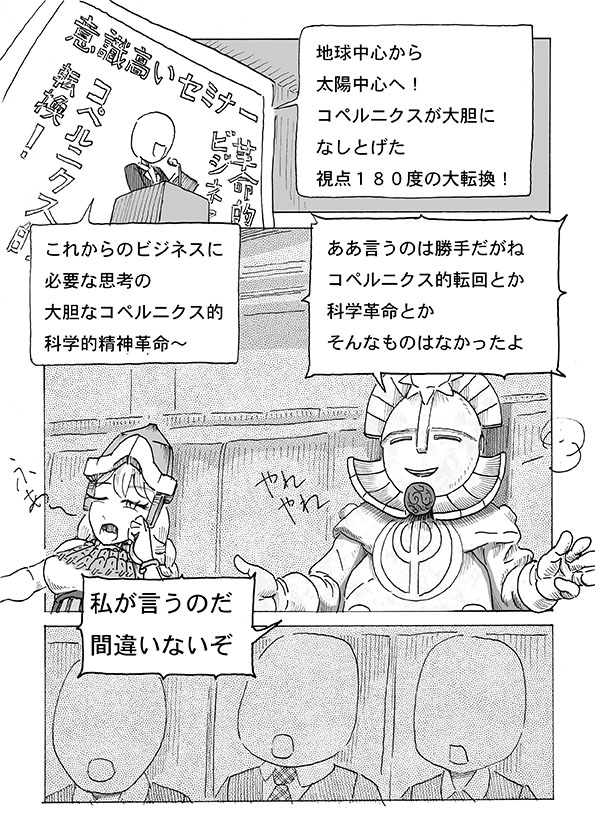 意識高いセミナー
コペルニクス的
転換！
革命的
ビジネス
地球中心から
太陽中心へ！
コペルニクスが大胆に
なしとげた
視点１８０度の大転換！
これからのビジネスに
必要な思考の
大胆なコペルニクス的
科学的精神革命～
ああ言うのは勝手だがね
コペルニクス的転回とか
科学革命とか
そんなものはなかったよ
やれ
やれ
ふぁ～
私が言うのだ
間違いないぞ